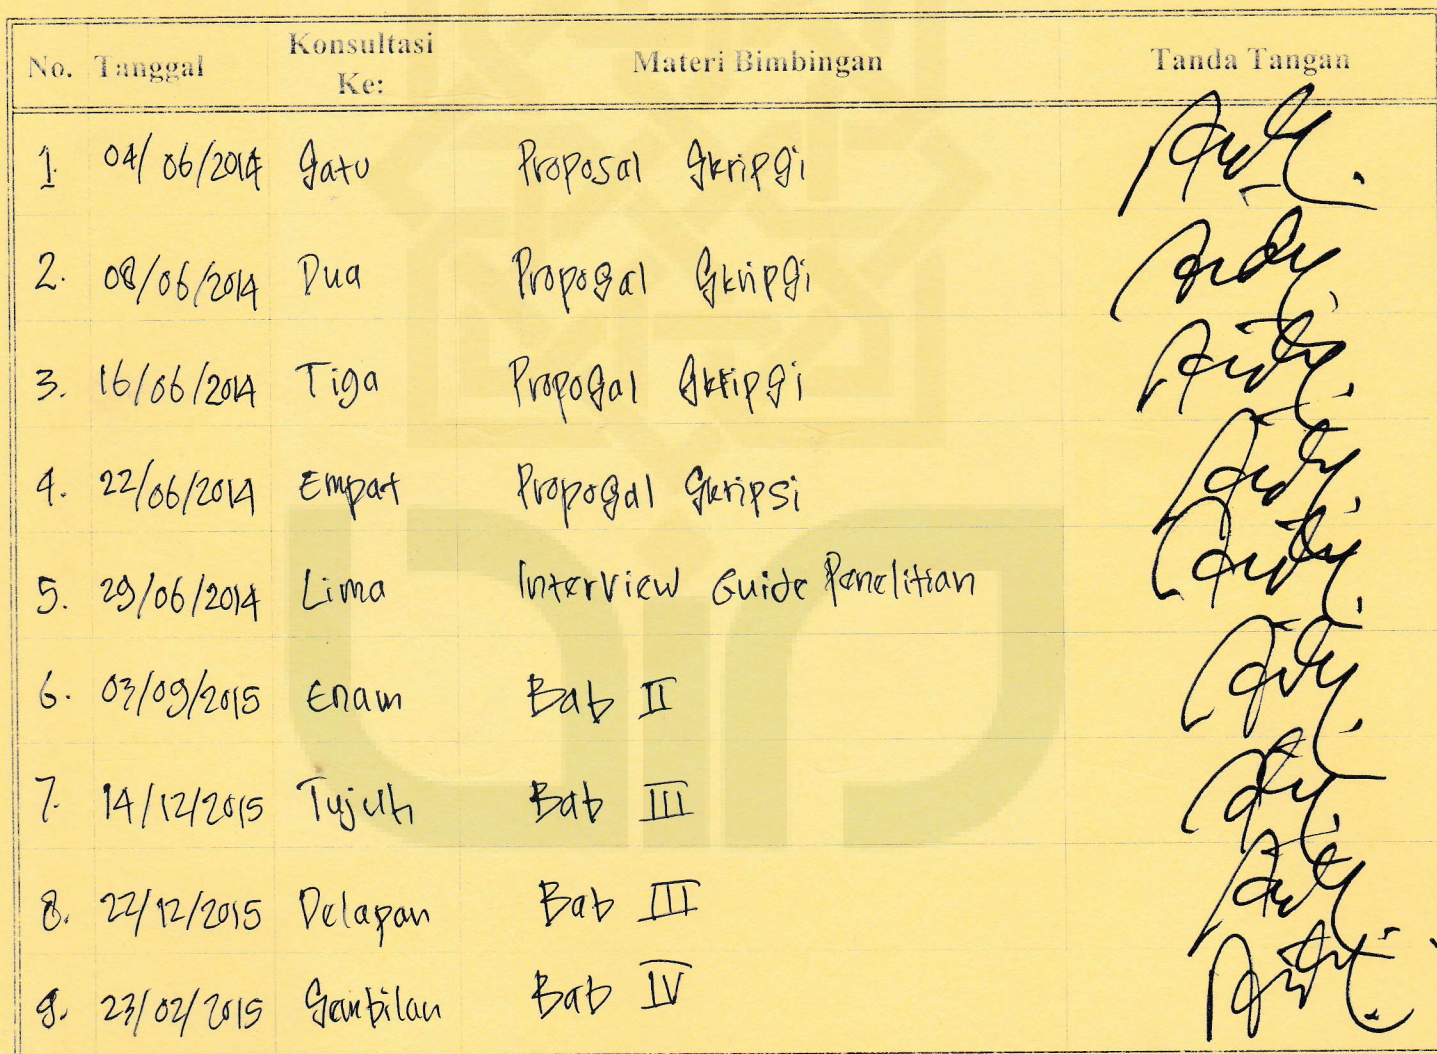 No. Tanggal Konsultasi Ke: Materi Bimbingan Tanda Tangan
1. 04/06/2014 Satu Proposal Skripsi
2. 08/06/2014 Dua Proposal Skripsi
3. 16/06/2014 Tiga Proposal Skripsi
4. 22/06/2014 Empat Proposal Skripsi
5. 29/06/2014 Lima Interview Guide Penelitian
6. 03/09/2015 Enam Bab II
7. 14/12/2015 Tujuh Bab III
8. 22/12/2015 Delapan Bab III
9. 23/02/2015 Sembilan Bab IV